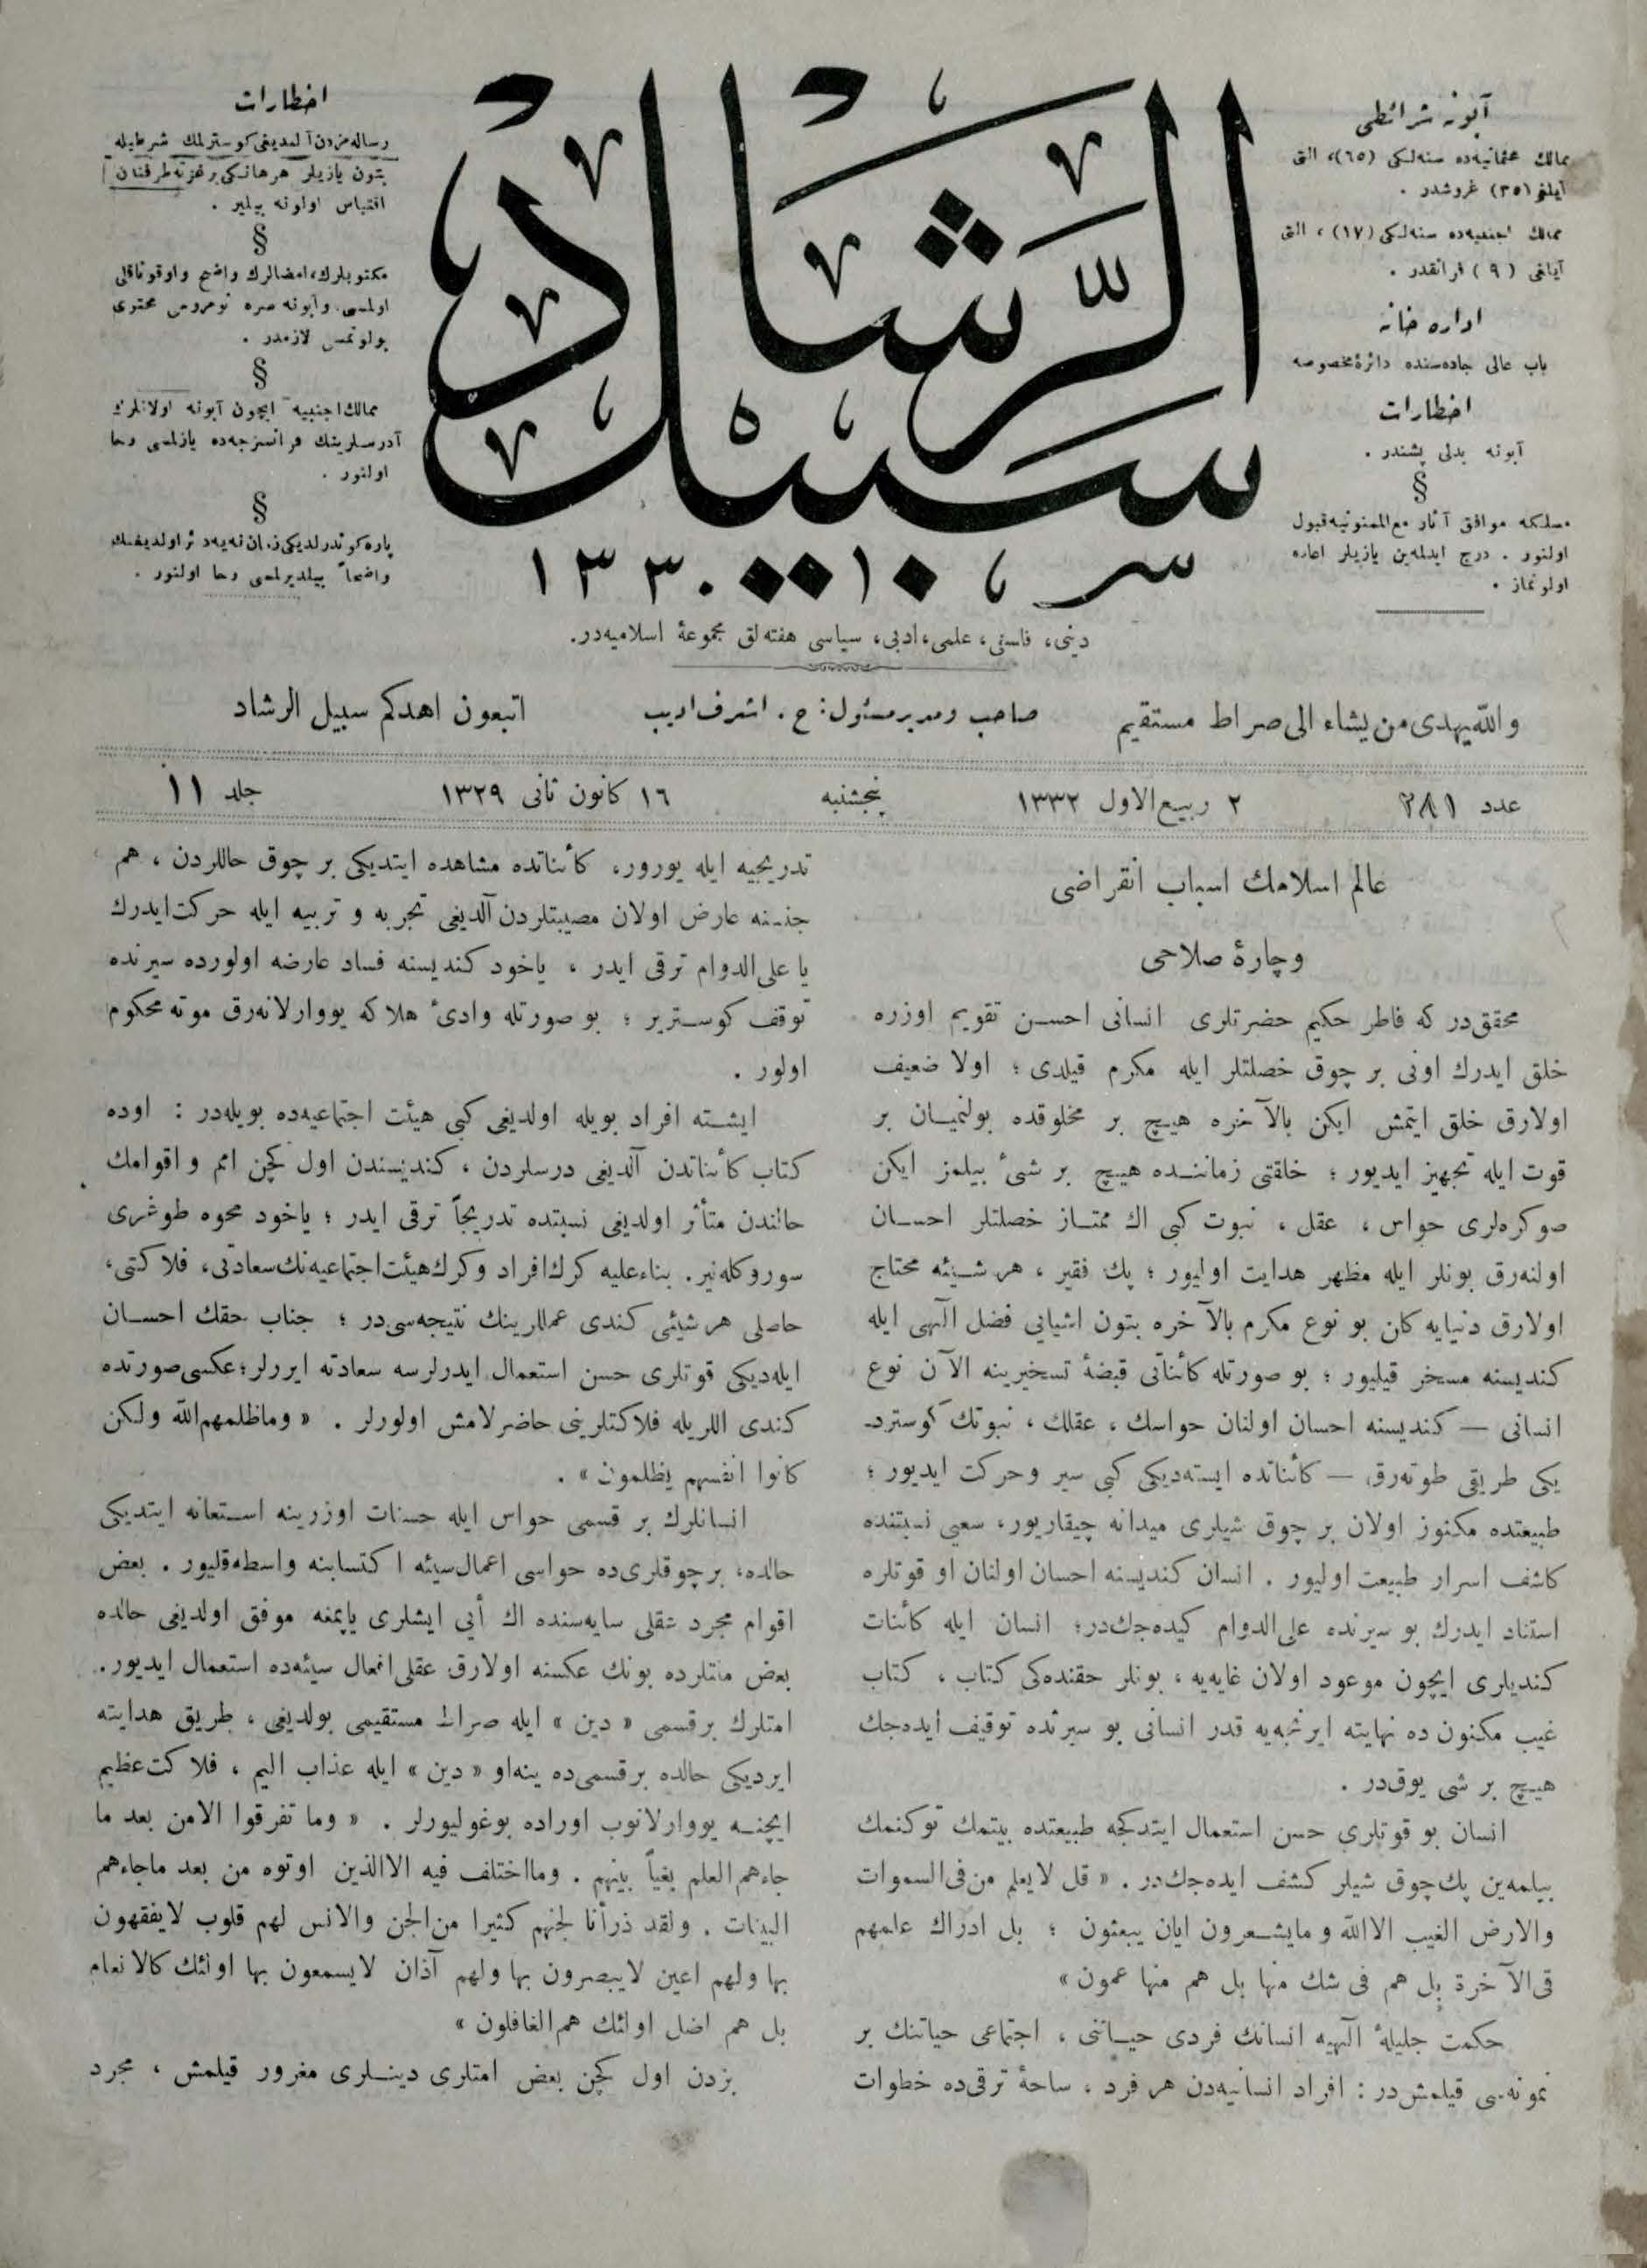 آبونه شرائطی
ممالك عثمانیه‌ده سنه‌لكی (٦٥)، التی
آیلغی (٣٥) غروشدر .
ممالك اجنبیه‌ده سنه‌لكی (١٧) ، التی
آیلغی ( ٩ ) فرانقدر .
اداره خانه
باب عالی جاده‌سنده دائرهٔ مخصوصه
اخطارات
آبونه بدلی پشیندر .
§
مسلكه موافق آثار مع‌الممنونیه قبول
اولنور . درج ایدلمه‌ین یازیلر اعاده
اولونماز .
سبیل الرشاد
سر ١٠ ١٣٣٠
اخطارات
رساله‌مزدن آلندیغی كوسترلمك شرطیله
بتون یازیلر هرهانكی بر غزته طرفندن
اقتباس اولونه بیلیر .
§
مكتوبلرك، امضالرك واضح و اوقوناقلی
اولمسی و آبونه صره نومروسی محتوی
بولونمسی لازمدر .
§
ممالك اجنبیه ایچون آبونه اولانلرك
آدرسلرینك فرانسزجه‌ده یازلمسی رجا
اولنور .
§
پاره كوندرلدیكی زمان نه‌یه دائر اولدیغنك
واضحاً بیلدیرلمسی رجا اولنور .
دینی، فلسفی، علمی، ادبی، سیاسی هفته‌لق مجموعهٔ اسلامیه‌در.
والله یهدی من یشاء الی صراط مستقیم
صاحب و مدیر مسئول: ح . اشرف ادیب
اتبعون اهدكم سبیل الرشاد
عدد ٢٨١
٢ ربیع‌الاول ١٣٣٢
پنجشنبه
١٦ كانون ثانی ١٣٢٩
جلد ١١
عالم اسلامك اسباب انقراضی
و چارهٔ صلاحی
محقق‌در كه فاطر حكیم حضرتلری انسانی احسن تقویم اوزره
خلق ایدرك اونی بر چوق خصلتلر ایله مكرم قیلدی ؛ اولا ضعیف
اولارق خلق ایتمش ایكن بالآخره هیچ بر مخلوقده بولنمیان بر
قوت ایله تجهیز ایدیور ؛ خلقتی زماننده هیچ بر شیٔ بیلمز ایكن
صوكره‌لری حواس ، عقل ، نبوت كبی اك ممتاز خصلتلر احسان
اولنه‌رق بونلر ایله مظهر هدایت اولیور ؛ پك فقیر ، هر شیئه محتاج
اولارق دنیایه كلن بو نوع مكرم بالآخره بتون اشیایی فضل آلهی ایله
كندیسنه مسخر قیلیور ؛ بو صورتله كائناتی قبضهٔ تسخیرینه آلان نوع
انسانی — كندیسنه احسان اولنان حواسك ، عقلك ، نبوتك كوسترد‌-
یكی طریقی طوته‌رق — كائناتده ایسته‌دیكی كبی سیر و حركت ایدیور ؛
طبیعتده مكنوز اولان بر چوق شیلری میدانه چیقاریور، سعیی نسبتنده
كاشف اسرار طبیعت اولیور . انسان كندیسنه احسان اولنان او قوتلره
استناد ایدرك بو سیرنده علی‌الدوام كیده‌جك‌در؛ انسان ایله كائنات
كندیلری ایچون موعود اولان غایه‌یه ، بونلر حقنده‌كی كتاب ، كتاب
غیب مكنون ده نهایته ایرنجه‌یه قدر انسانی بو سیرنده توقیف ایده‌جك
هیچ بر شی یوق‌در .
انسان بو قوتلری حسن استعمال ایتدكجه طبیعتده بیتمك توكنمك
بیلمه‌ین پك چوق شیلر كشف ایده‌جك‌در . « قل لا یعلم من فی‌السموات
والارض الغیب الا الله و مایشعرون ایان یبعثون ؛ بل ادراك علمهم
فی‌الآخرة بل هم فی شك منها بل هم منها عمون »
حكمت جلیلهٔ آلهیه انسانك فردی حیاتنی ، اجتماعی حیاتنك بر
نمونه‌سی قیلمش‌در : افراد انسانیه‌دن هر فرد ، ساحهٔ ترقی‌ده خطوات
تدریجیه ایله یورور، كائناتده مشاهده ایتدیكی بر چوق حاللردن ، هم
جنسنه عارض اولان مصیبتلردن آلدیغی تجربه و تربیه ایله حركت ایدرك
یا علی‌الدوام ترقی ایدر ، یاخود كندیسنه فساد عارضه اولورده سیرنده
توقف كوستریر ؛ بو صورتله وادیٔ هلاكه یووارلانه‌رق موته محكوم
اولور .
ایشته افراد بویله اولدیغی كبی هیئت اجتماعیه‌ده بویله‌در : اوده
كتاب كائناتدن آلدیغی درسلردن ، كندیسندن اول كچن امم و اقوامك
حالندن متأثر اولدیغی نسبتده تدریجاً ترقی ایدر ؛ یاخود محوه طوغری
سوروكله‌نیر. بناء علیه كرك افراد و كرك هیئت اجتماعیه‌نك سعادتی، فلاكتی،
حاصلی هر شیئی كندی عمللرینك نتیجه‌سی‌در ؛ جناب حقك احسان
ایله‌دیكی قوتلری حسن استعمال ایدرلرسه سعادته ایررلر؛ عكسی صورتده
كندی اللریله فلاكتلرینی حاضرلامش اولورلر . « وماظلمهم الله ولكن
كانوا انفسهم یظلمون » .
انسانلرك بر قسمی حواس ایله حسنات اوزرینه استعانه ایتدیكی
حالده، بر چوقلری‌ده حواسی اعمال سیئه اكتسابنه واسطه قلیور . بعض
اقوام مجرد عقلی سایه‌سنده اك أیی ایشلری یاپمغه موفق اولدیغی حالده
بعض ملتلرده بونك عكسنه اولارق عقلی افعال سیئه‌ده استعمال ایدیور.
امتلرك بر قسمی « دین » ایله صراط مستقیمی بولدیغی ، طریق هدایته
ایردیكی حالده بر قسمی‌ده ینه او « دین » ایله عذاب الیم ، فلاكت عظیم
ایچنه یووارلانوب اوراده بوغولیورلر . « وما تفرقوا الا من بعد ما
جاءهم العلم بغیاً بینهم . وما اختلف فیه الا الذین اوتوه من بعد ماجاءهم
البینات . ولقد ذرأنا لجهنم كثیرا من الجن والانس لهم قلوب لایفقهون
بها ولهم اعین لایبصرون بها ولهم آذان لایسمعون بها اولئك كالانعام
بل هم اضل اولئك هم الغافلون »
بزدن اول كچن بعض امتلری دینلری مغرور قیلمش ، مجرد